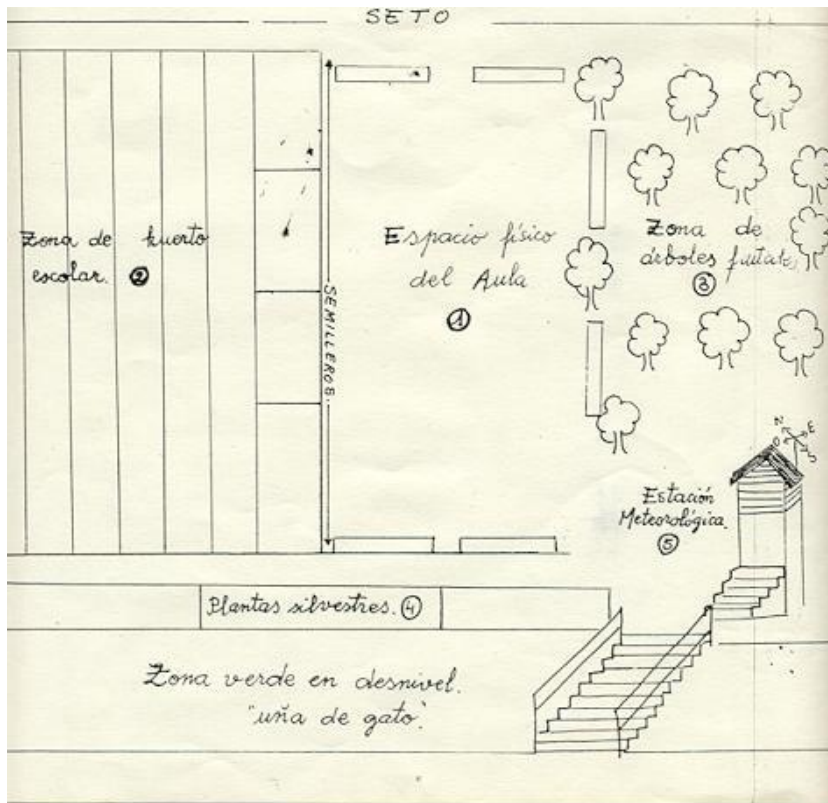 SETO
Zona de huerto
escolar. ②
SEMILLEROS
Espacio físico
del Aula
①
Zona de
árboles frutales
③
N E
O S
Estación
Meteorológica.
⑤
Plantas silvestres. ④
Zona verde en desnivel.
"uña de gato".